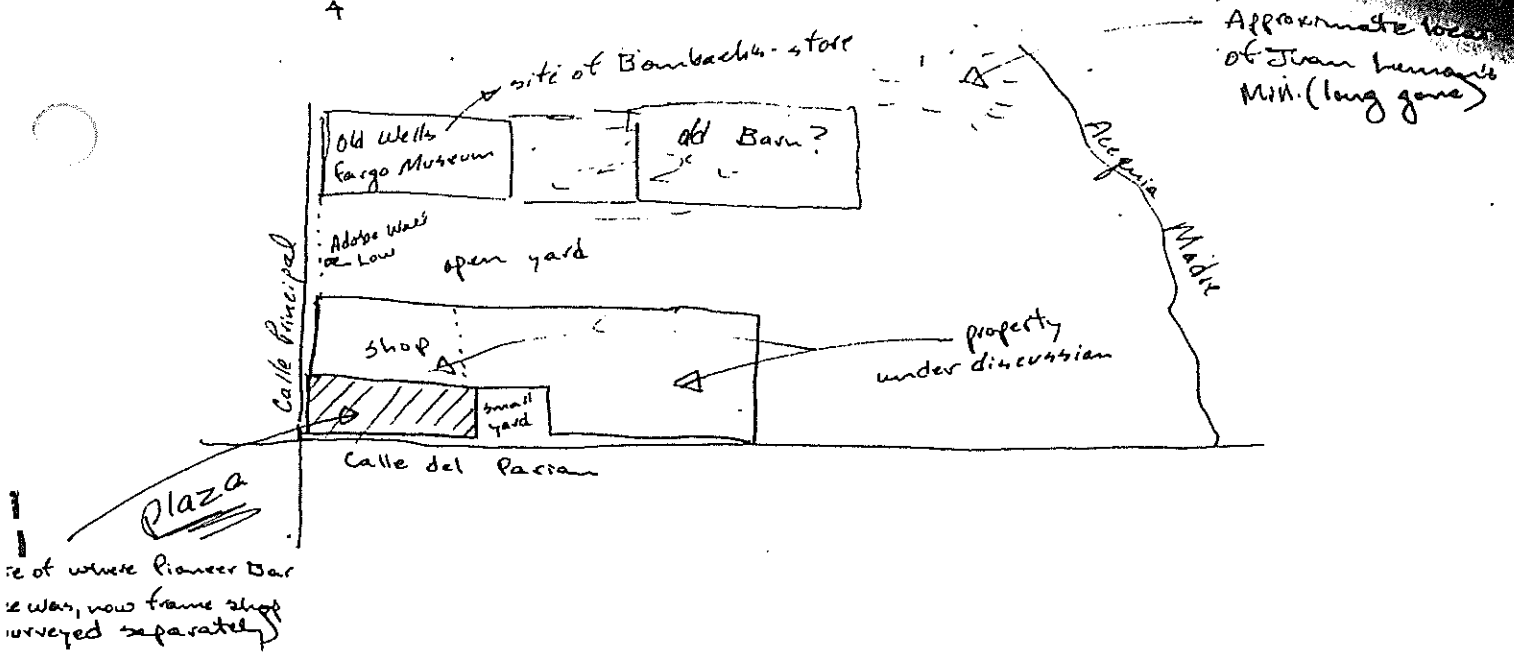 4
Approximate loca
of Juan
Mill. (long gone)
site of Bombach's store
Old Wells
Fargo Museum
old Barn?
Acequia Madre
Adobe Wall
Low
open yard
Calle Principal
shop
property
under discussion
small
yard
Calle del Parian
Plaza
te of where Pioneer Bar
e was, now frame shop
urveyed separately)